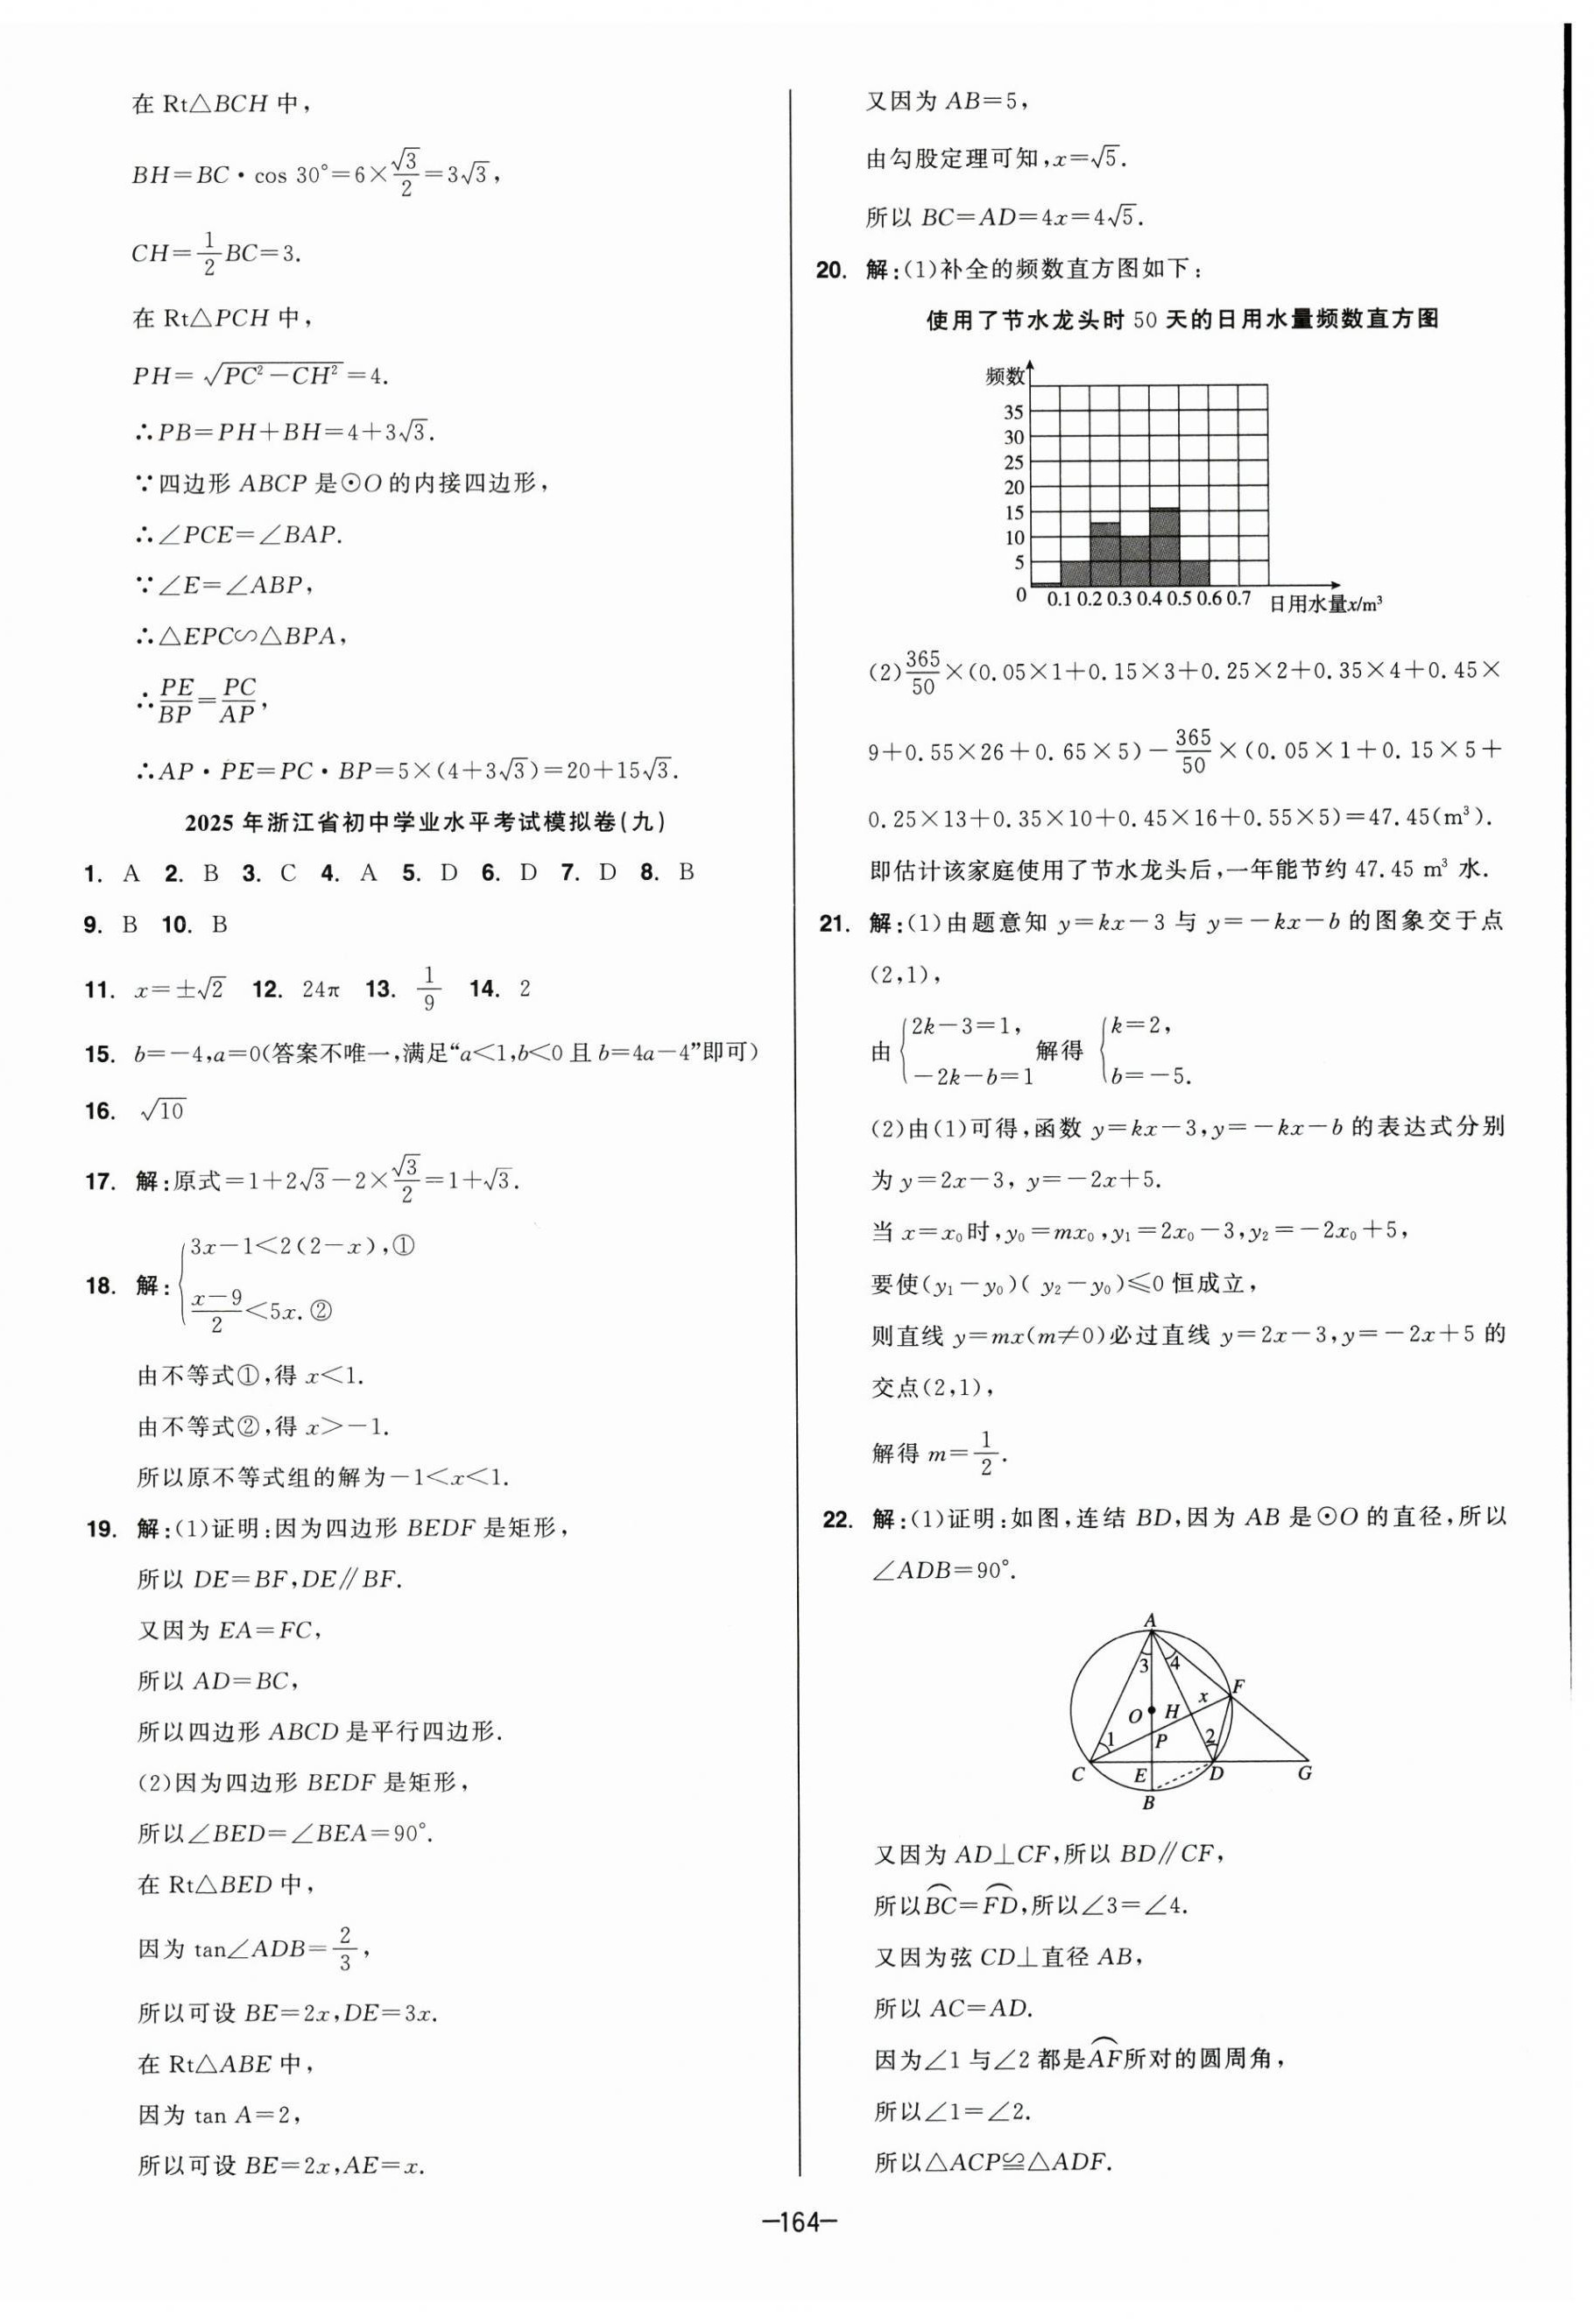 在 Rt△BCH 中，
BH=BC·cos 30°=6×√3/2=3√3，
CH=1/2BC=3.
在 Rt△PCH 中，
PH=√(PC²-CH²)=4.
∴PB=PH+BH=4+3√3.
∵四边形 ABCP 是⊙O 的内接四边形，
∴∠PCE=∠BAP.
∵∠E=∠ABP，
∴△EPC∽△BPA，
∴PE/BP=PC/AP，
∴AP·PE=PC·BP=5×(4+3√3)=20+15√3.
2025 年浙江省初中学业水平考试模拟卷(九)
1. A 2. B 3. C 4. A 5. D 6. D 7. D 8. B
9. B 10. B
11. x=±√2 12. 24π 13. 1/9 14. 2
15. b=-4,a=0(答案不唯一,满足“a<1,b<0 且 b=4a-4”即可)
16. √10
17. 解:原式=1+2√3-2×√3/2=1+√3.
18. 解:{3x-1<2(2-x),①
(x-9)/2<5x.②
由不等式①,得 x<1.
由不等式②,得 x>-1.
所以原不等式组的解为-1<x<1.
19. 解:(1)证明:因为四边形 BEDF 是矩形，
所以 DE=BF,DE∥BF.
又因为 EA=FC，
所以 AD=BC，
所以四边形 ABCD 是平行四边形.
(2)因为四边形 BEDF 是矩形，
所以∠BED=∠BEA=90°.
在 Rt△BED 中，
因为 tan∠ADB=2/3，
所以可设 BE=2x,DE=3x.
在 Rt△ABE 中，
因为 tan A=2，
所以可设 BE=2x,AE=x.
又因为 AB=5，
由勾股定理可知,x=√5.
所以 BC=AD=4x=4√5.
20. 解:(1)补全的频数直方图如下:
使用了节水龙头时 50 天的日用水量频数直方图
频数
35
30
25
20
15
10
5
0 0.1 0.2 0.3 0.4 0.5 0.6 0.7 日用水量x/m³
(2)365/50×(0.05×1+0.15×3+0.25×2+0.35×4+0.45×
9+0.55×26+0.65×5)-365/50×(0.05×1+0.15×5+
0.25×13+0.35×10+0.45×16+0.55×5)=47.45(m³).
即估计该家庭使用了节水龙头后,一年能节约 47.45 m³ 水.
21. 解:(1)由题意知 y=kx-3 与 y=-kx-b 的图象交于点
(2,1)，
由{2k-3=1, -2k-b=1 解得{k=2, b=-5.
(2)由(1)可得,函数 y=kx-3,y=-kx-b 的表达式分别
为 y=2x-3, y=-2x+5.
当 x=x₀时,y₀=mx₀,y₁=2x₀-3,y₂=-2x₀+5，
要使(y₁-y₀)( y₂-y₀)≤0 恒成立，
则直线 y=mx(m≠0)必过直线 y=2x-3,y=-2x+5 的
交点(2,1)，
解得 m=1/2.
22. 解:(1)证明:如图,连结 BD,因为 AB 是⊙O 的直径,所以
∠ADB=90°.
A
3 4
F
x
O H
1 P 2
C E D G
B
又因为 AD⊥CF,所以 BD∥CF，
所以⌒BC=⌒FD,所以∠3=∠4.
又因为弦 CD⊥直径 AB，
所以 AC=AD.
因为∠1 与∠2 都是⌒AF所对的圆周角，
所以∠1=∠2.
所以△ACP≌△ADF.
-164-